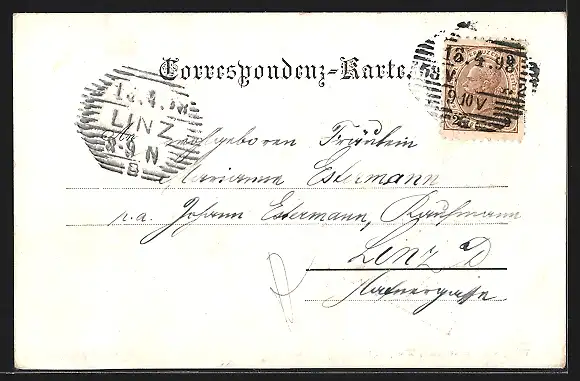 Correspondenz-Karte.
13.4.98
LINZ
8-9 N
8
KREUZER
13.4.98
9-10V
An
Wohlgeboren Fräulein
Marianne Estermann
p.a. Johann Estermann, Kaufmann
Linz D
Hafnergasse